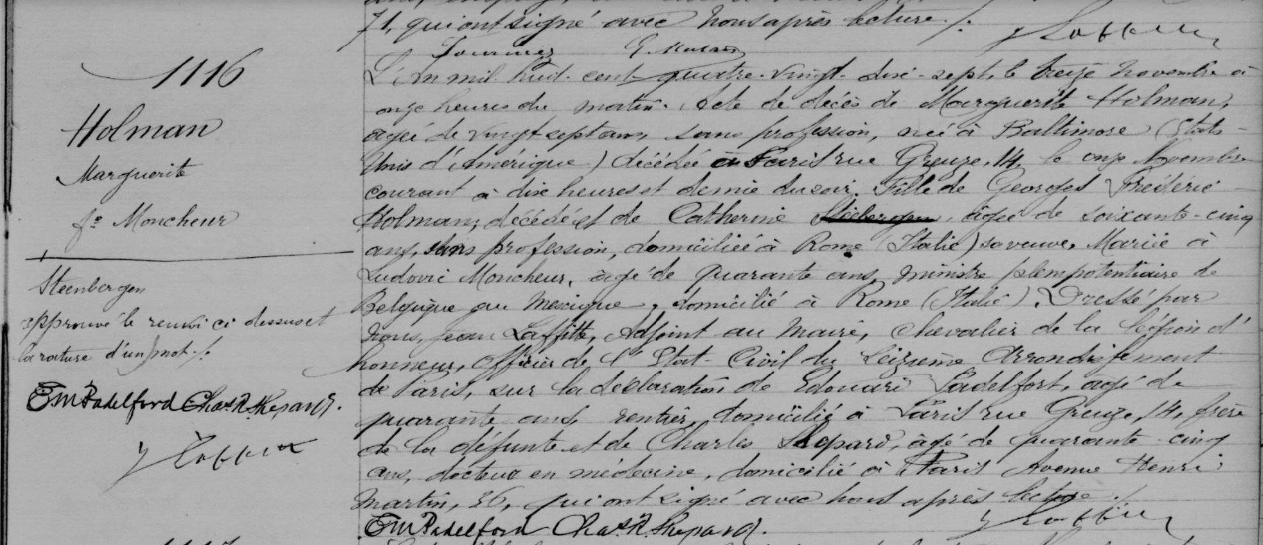 71, qui ont signé avec nous après lecture ./.
1116
Holman
Marguerite
fe Moncheur
L'an mil huit cent quatre vingt dix-sept, le treize novembre à
onze heures du matin. Acte de décès de Marguerite Holman,
agée de vingt sept ans, sans profession, née à Baltimore (Etats-
Unis d'Amérique) décédée à Paris rue Greuze, 14, le onze Novembre
courant à dix heures et demie du soir. Fille de Georges Frédéric
Holman, décédé et de Catherine agée de soixante-cinq
ans, sans profession, domiciliée à Rome (Italie) sa veuve. Mariée à
Ludovic Moncheur, agé de quarante ans, ministre plenipotentiaire de
Belgique au Mexique, domicilié à Rome (Italie). Dressé par
Nous, Jean Laffitte, Adjoint au Maire, Chevalier de la Légion d'
honneur, officier de l'Etat Civil du Seizième Arrondissement
de Paris, sur la déclaration de Edouard Padelfort, agé de
quarante ans, rentier, domicilié à Paris rue Greuze, 14, frère
de la défunte et de Charles Shepard, agé de quarante-cinq
ans, docteur en médecine, domicilié à Paris Avenue Henri
Martin, 36, qui ont signé avec nous après lecture ./.
EMPadelford Chas. R. Shepard.
Steenbergen
approuvé le renvoi ci dessus et
la rature d'un mot ./.
EMPadelford Chas. R. Shepard.